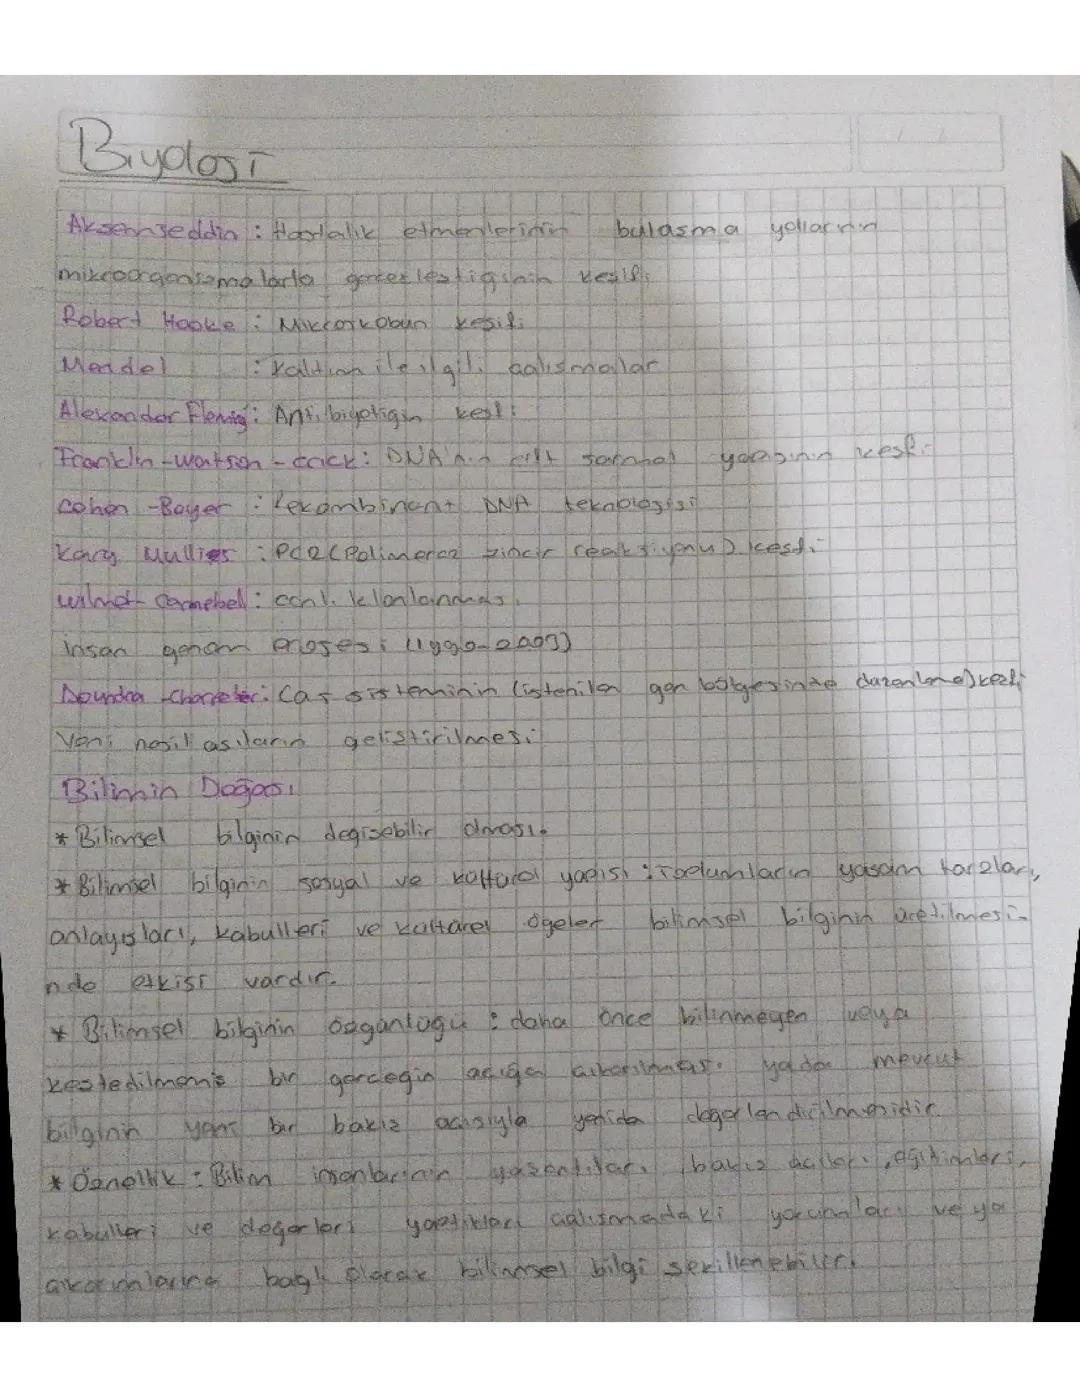 Biyoloji
Aksemseddin : Hastalık etmenlerinin bulasma yollarının
mikroorganizmalarla gerceklestiginin kesifi
Robert Hooke : Mikroskobun kesifi
Mendel : kalıtım ile ilgili calısmalar
Alexander Fleming : Antibiyotigin kesfi
Franklin - Watson - Crick : DNA'nın cift sarmal yapısının kesfi
Cohen - Boyer : Rekombinant DNA teknolojisi
Kary Mullies : PCR (Polimeraz zincir reaksiyonu) kesfi
wilmot : canlı klonlanması
insan genom projesi (1990-2003)
sisteminin (istenilen gen bölgesinde düzenleme) kesfi
Yeni nesil asıların gelistirilmesi
Bilimin Doğası
* Bilimsel bilginin degisebilir olması.
* Bilimsel bilginin sosyal ve kültürel yapısı : Toplumların yasam tarzları,
anlayısları, kabulleri ve kültürel ögeler bilimsel bilginin üretilmesi-
nde etkisi vardır.
* Bilimsel bilginin özgünlügü : daha önce bilinmeyen veya
kesfedilmemis bir gercegin acıga cıkarılması yada mevcut
bilginin yeni bir bakıs acısıyla yeniden degerlendirilmesidir.
* Öznellik : Bilim insanlarının yasantıları, bakıs acıları, egitimleri,
kabulleri ve degerleri yaptıkları calısmadaki yorumları veya
cıkarımlarına baglı olarak bilimsel bilgi sekillenebilir.